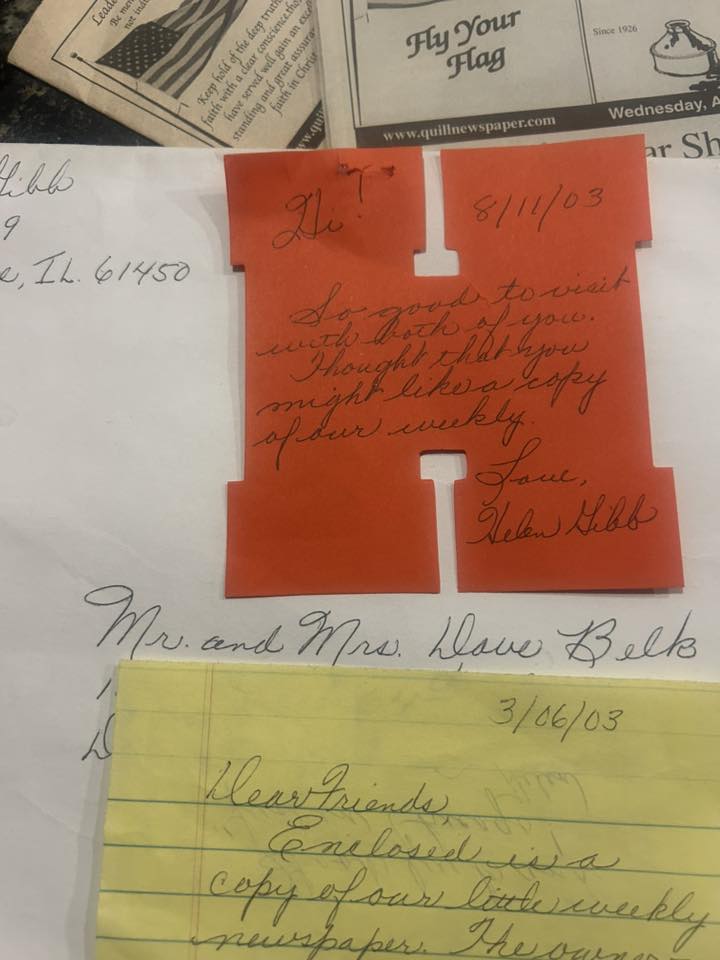 Leade
Be men
not ind
Keep hold of the deep truth
faith with a clear conscience.
have served well gain an exce
standing and great assura
faith in Chris
Fly Your
Flag
Since 1926
www.quillnewspaper.com
Wednesday, A
ar Sh
Gibb
9
e, IL. 61450
Hi!
8/11/03
So good to visit
with both of you.
Thought that you
might like a copy
of our weekly.
Love,
Helen Gibb
Mr. and Mrs. Dave Belk
1
D
3/06/03
Dear Friends
Enclosed is a
copy of our little weekly
newspaper. The owner